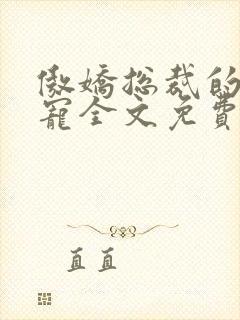 傲嬌總裁的
寵全文免費
直直